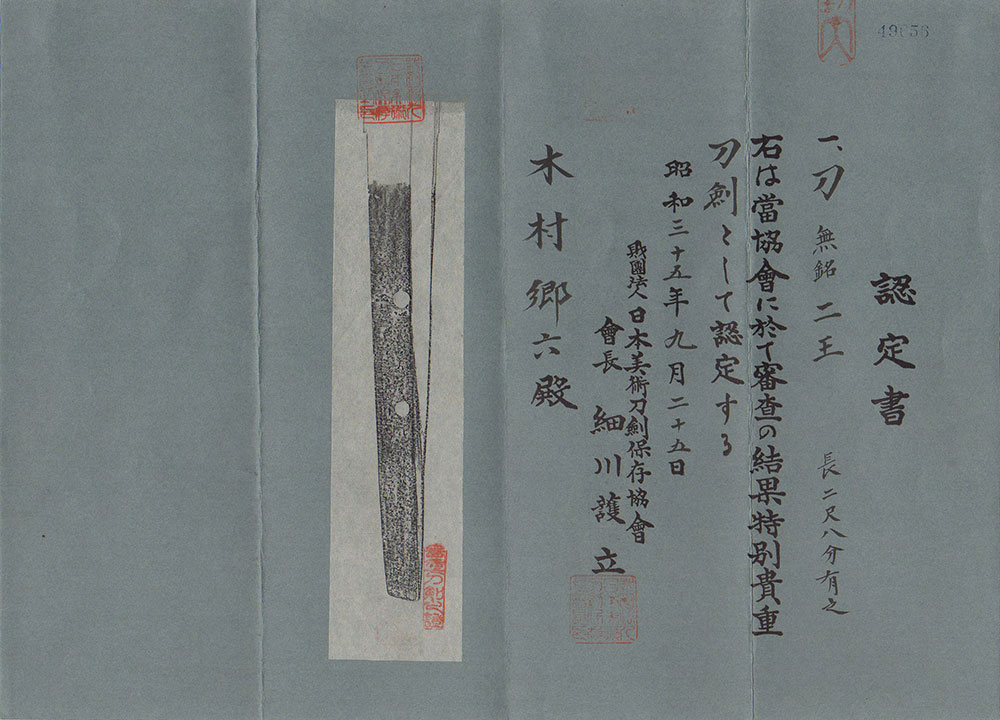 認定書
一、刀 無銘 二王 長二尺八分有之
右は當協會に於て審査の結果特別貴重
刀劍として認定する
昭和三十五年九月二十五日
財團法人日本美術刀劍保存協會
會長 細川護立
木村郷六殿